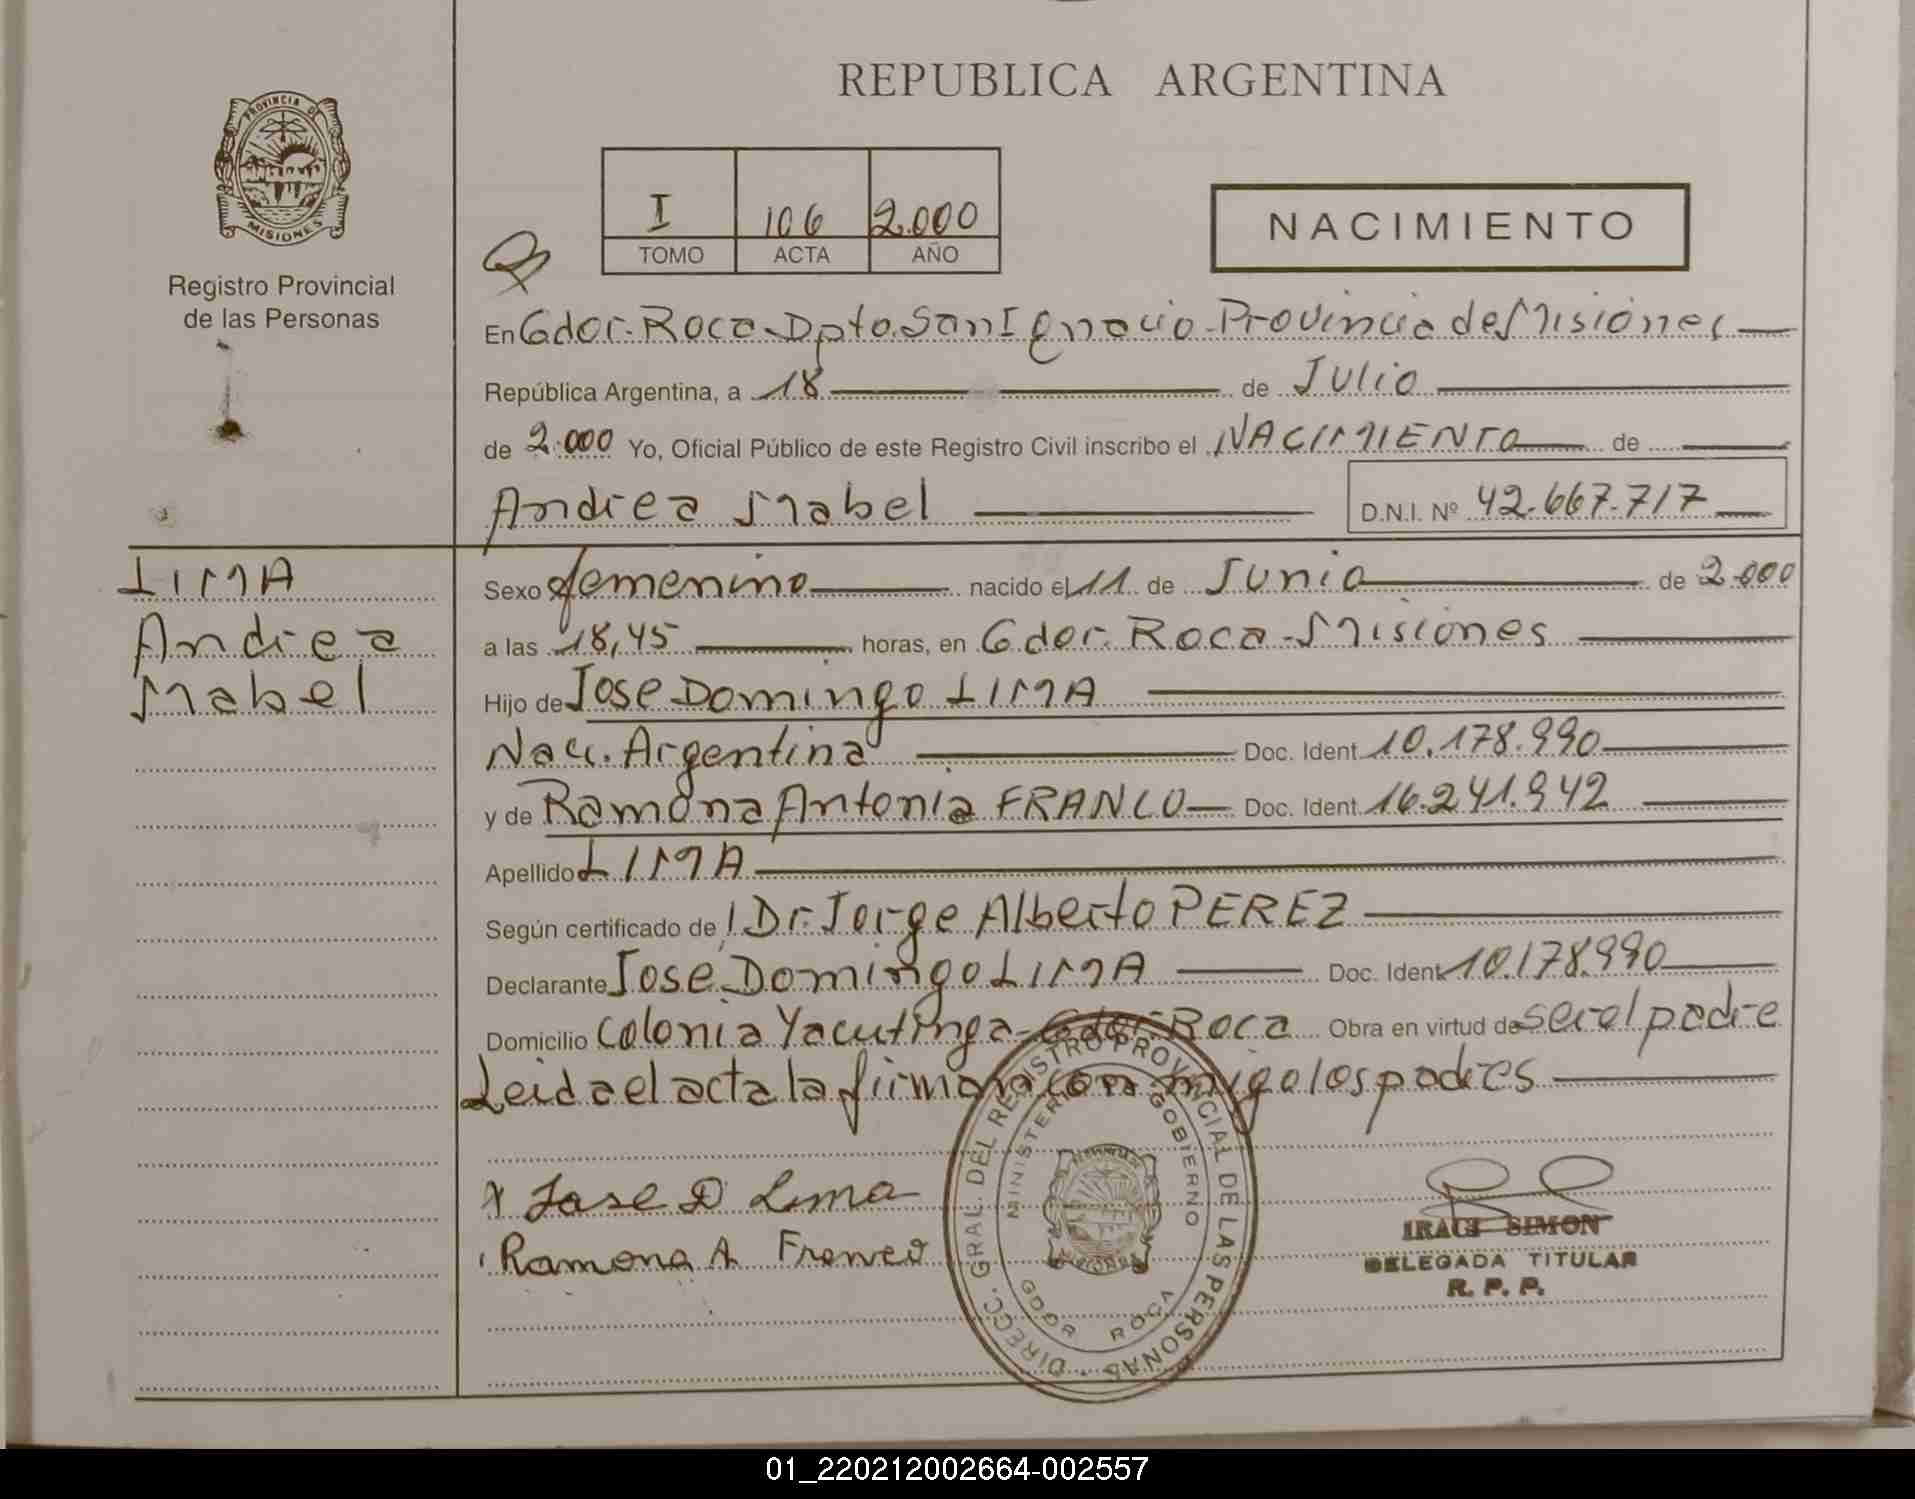 PROVINCIA D
MISIONES
Registro Provincial
de las Personas
REPUBLICA ARGENTINA
I 106 2.000
TOMO ACTA AÑO
NACIMIENTO
En Gdor. Roca - Dpto. San Ignacio - Provincia de Misiones
República Argentina, a 18 de Julio
de 2.000 Yo, Oficial Público de este Registro Civil inscribo el NACIMIENTO de
Andrea Mabel D.N.I. Nº 42.667.717
LIMA
Andrea
Mabel
Sexo femenino nacido el 11 de Junio de 2.000
a las 18,45 horas, en Gdor. Roca - Misiones
Hijo de Jose Domingo LIMA
Nac. Argentina Doc. Ident. 10.178.990
y de Ramona Antonia FRANCO Doc. Ident. 16.241.942
Apellido LIMA
Según certificado del Dr. Jorge Alberto PEREZ
Declarante Jose Domingo LIMA Doc. Ident. 10.178.990
Domicilio Colonia Yacutinga - Gdor. Roca Obra en virtud de ser el padre
Leida el acta la firman con migo los padres
x Jose D Lima
Ramona A Franco
DIRECC. GRAL. DEL REGISTRO PROVINCIAL DE LAS PERSONAS
MINISTERIO GOBIERNO
GDOR ROCA
SIMON
DELEGADA TITULAR
R. P. P.
01_220212002664-002557